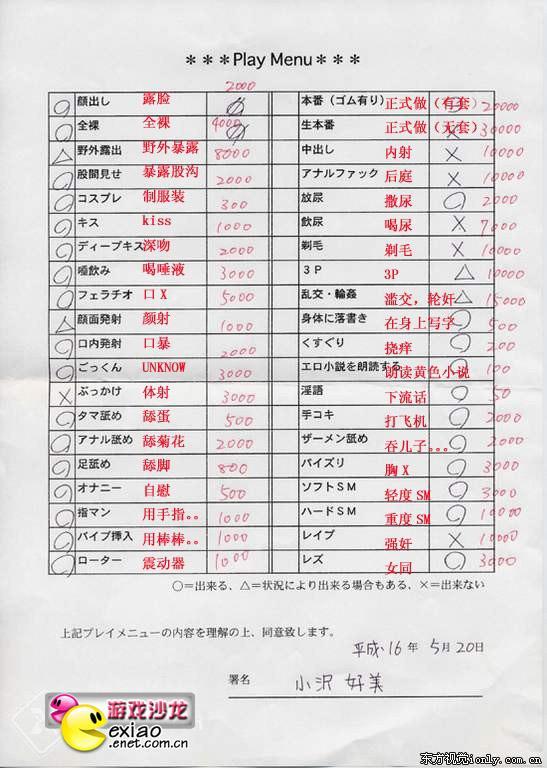 ＊＊＊Play Menu＊＊＊
2000
○ 顔出し 露脸 本番（ゴム有り） 正式做（有套） ○ 20000
○ 全裸 全裸 4000 生本番 正式做（无套） × 30000
△ 野外露出 野外暴露 8000 中出し 内射 × 10000
○ 股間見せ 暴露股沟 2000 アナルファック 后庭 × 10000
○ コスプレ 制服装 300 放尿 撒尿 ○ 2000
○ キス kiss 1000 飲尿 喝尿 × 7000
○ ディープキス 深吻 2000 剃毛 剃毛 × 10000
○ 唾飲み 喝唾液 3000 ３Ｐ 3P △ 10000
○ フェラチオ 口 X 5000 乱交・輪姦 滥交，轮奸 △ 15000
△ 顔面発射 颜射 1000 身体に落書き 在身上写字 ○ 500
○ 口内発射 口暴 2000 くすぐり 挠痒 ○ 200
○ ごっくん UNKNOW 3000 エロ小説を朗読する 朗读黄色小说 ○ 100
× ぶっかけ 体射 3000 淫語 下流话 ○ 50
○ タマ舐め 舔蛋 500 手コキ 打飞机 ○ 2000
○ アナル舐め 舔菊花 2000 ザーメン舐め 吞儿子。。。 ○ 2000
○ 足舐め 舔脚 800 パイズリ 胸 X ○ 3000
○ オナニー 自慰 500 ソフトＳＭ 轻度 SM ○ 3000
○ 指マン 用手指。。 1000 ハードＳＭ 重度 SM ○ 10000
○ バイブ挿入 用棒棒。。 1000 レイプ 强奸 × 10000
○ ローター 震动器 1000 レズ 女同 ○ 3000
○＝出来る、△＝状況により出来る場合もある、×＝出来ない
上記プレイメニューの内容を理解の上、同意致します。
平成16年 5月20日
署名 小沢 好美
游戏沙龙
exiao
.enet.com.cn
东方视觉ionly.com.cn